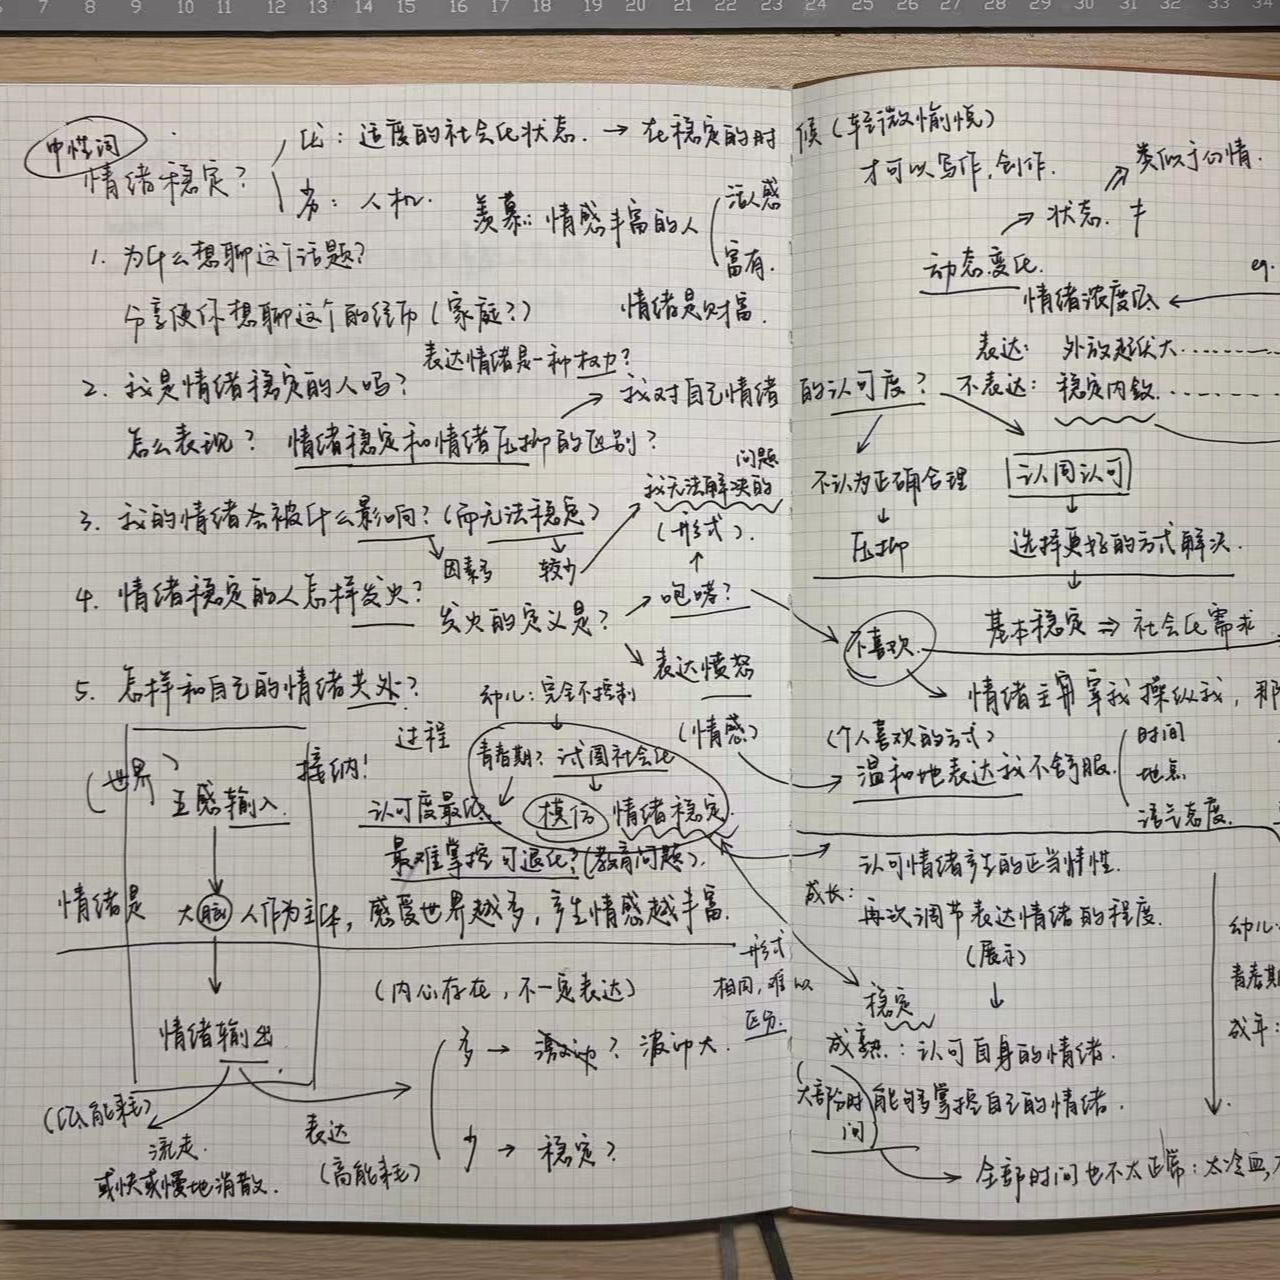 7 8 9 10 11 12 13 14 15 16 17 18 19 20 21 22 23 24 25 26 27 28 29 30 31 32 33 34
中性词
情绪稳定？
优：适度的社会化状态. → 在稳定的时候（轻微愉悦）
才可以写作,创作.
劣：人机.
羡慕：情感丰富的人
活人感
富有.
情绪是财富.
1. 为什么想聊这个话题？
分享使你想聊这个的经历（家庭？）
表达情绪是一种权力？
2. 我是情绪稳定的人吗？
怎么表现？ 情绪稳定和情绪压抑的区别？
→ 我对自己情绪的认可度？
3. 我的情绪会被什么影响？（而无法稳定）
因素多
较少
我无法解决的问题
（形式）.
4. 情绪稳定的人怎样发火？
发火的定义是？
咆哮？
表达愤怒
（情感）
5. 怎样和自己的情绪共处？
过程
幼儿：完全不控制
青春期？试图社会化
模仿 情绪稳定
认可度最低.
最难掌控 可退化？(教育问题).
（世界）
五感输入.
接纳！
情绪是 大脑 人作为主体，感受世界越多，产生情感越丰富.
情绪输出.
（低能耗）
流走.
或快或慢地消散.
表达
（高能耗）
（内心存在，不一定表达）
多 → 激动？波动大.
少 → 稳定？
形式
相同,难以
区分.
类似于心情.
→ 状态.
动态变化.
eg.
情绪浓度
表达： 外放起伏大
不表达： 稳定内敛
不认为正确合理
↓
压抑
认同认可
↓
选择更好的方式解决.
↓
基本稳定 ⇒ 社会化需求
不喜欢.
情绪主宰我操纵我，那
（个人喜欢的方式）
温和地表达我不舒服.
时间
地点
语气态度.
认可情绪产生的正当情性.
成长：
再次调节表达情绪的程度.
（展示）
↓
稳定
成熟：认可自身的情绪.
（大部分时间）能够掌控自己的情绪.
→ 全部时间也不太正常：太冷血,
幼儿：
青春期
成年：